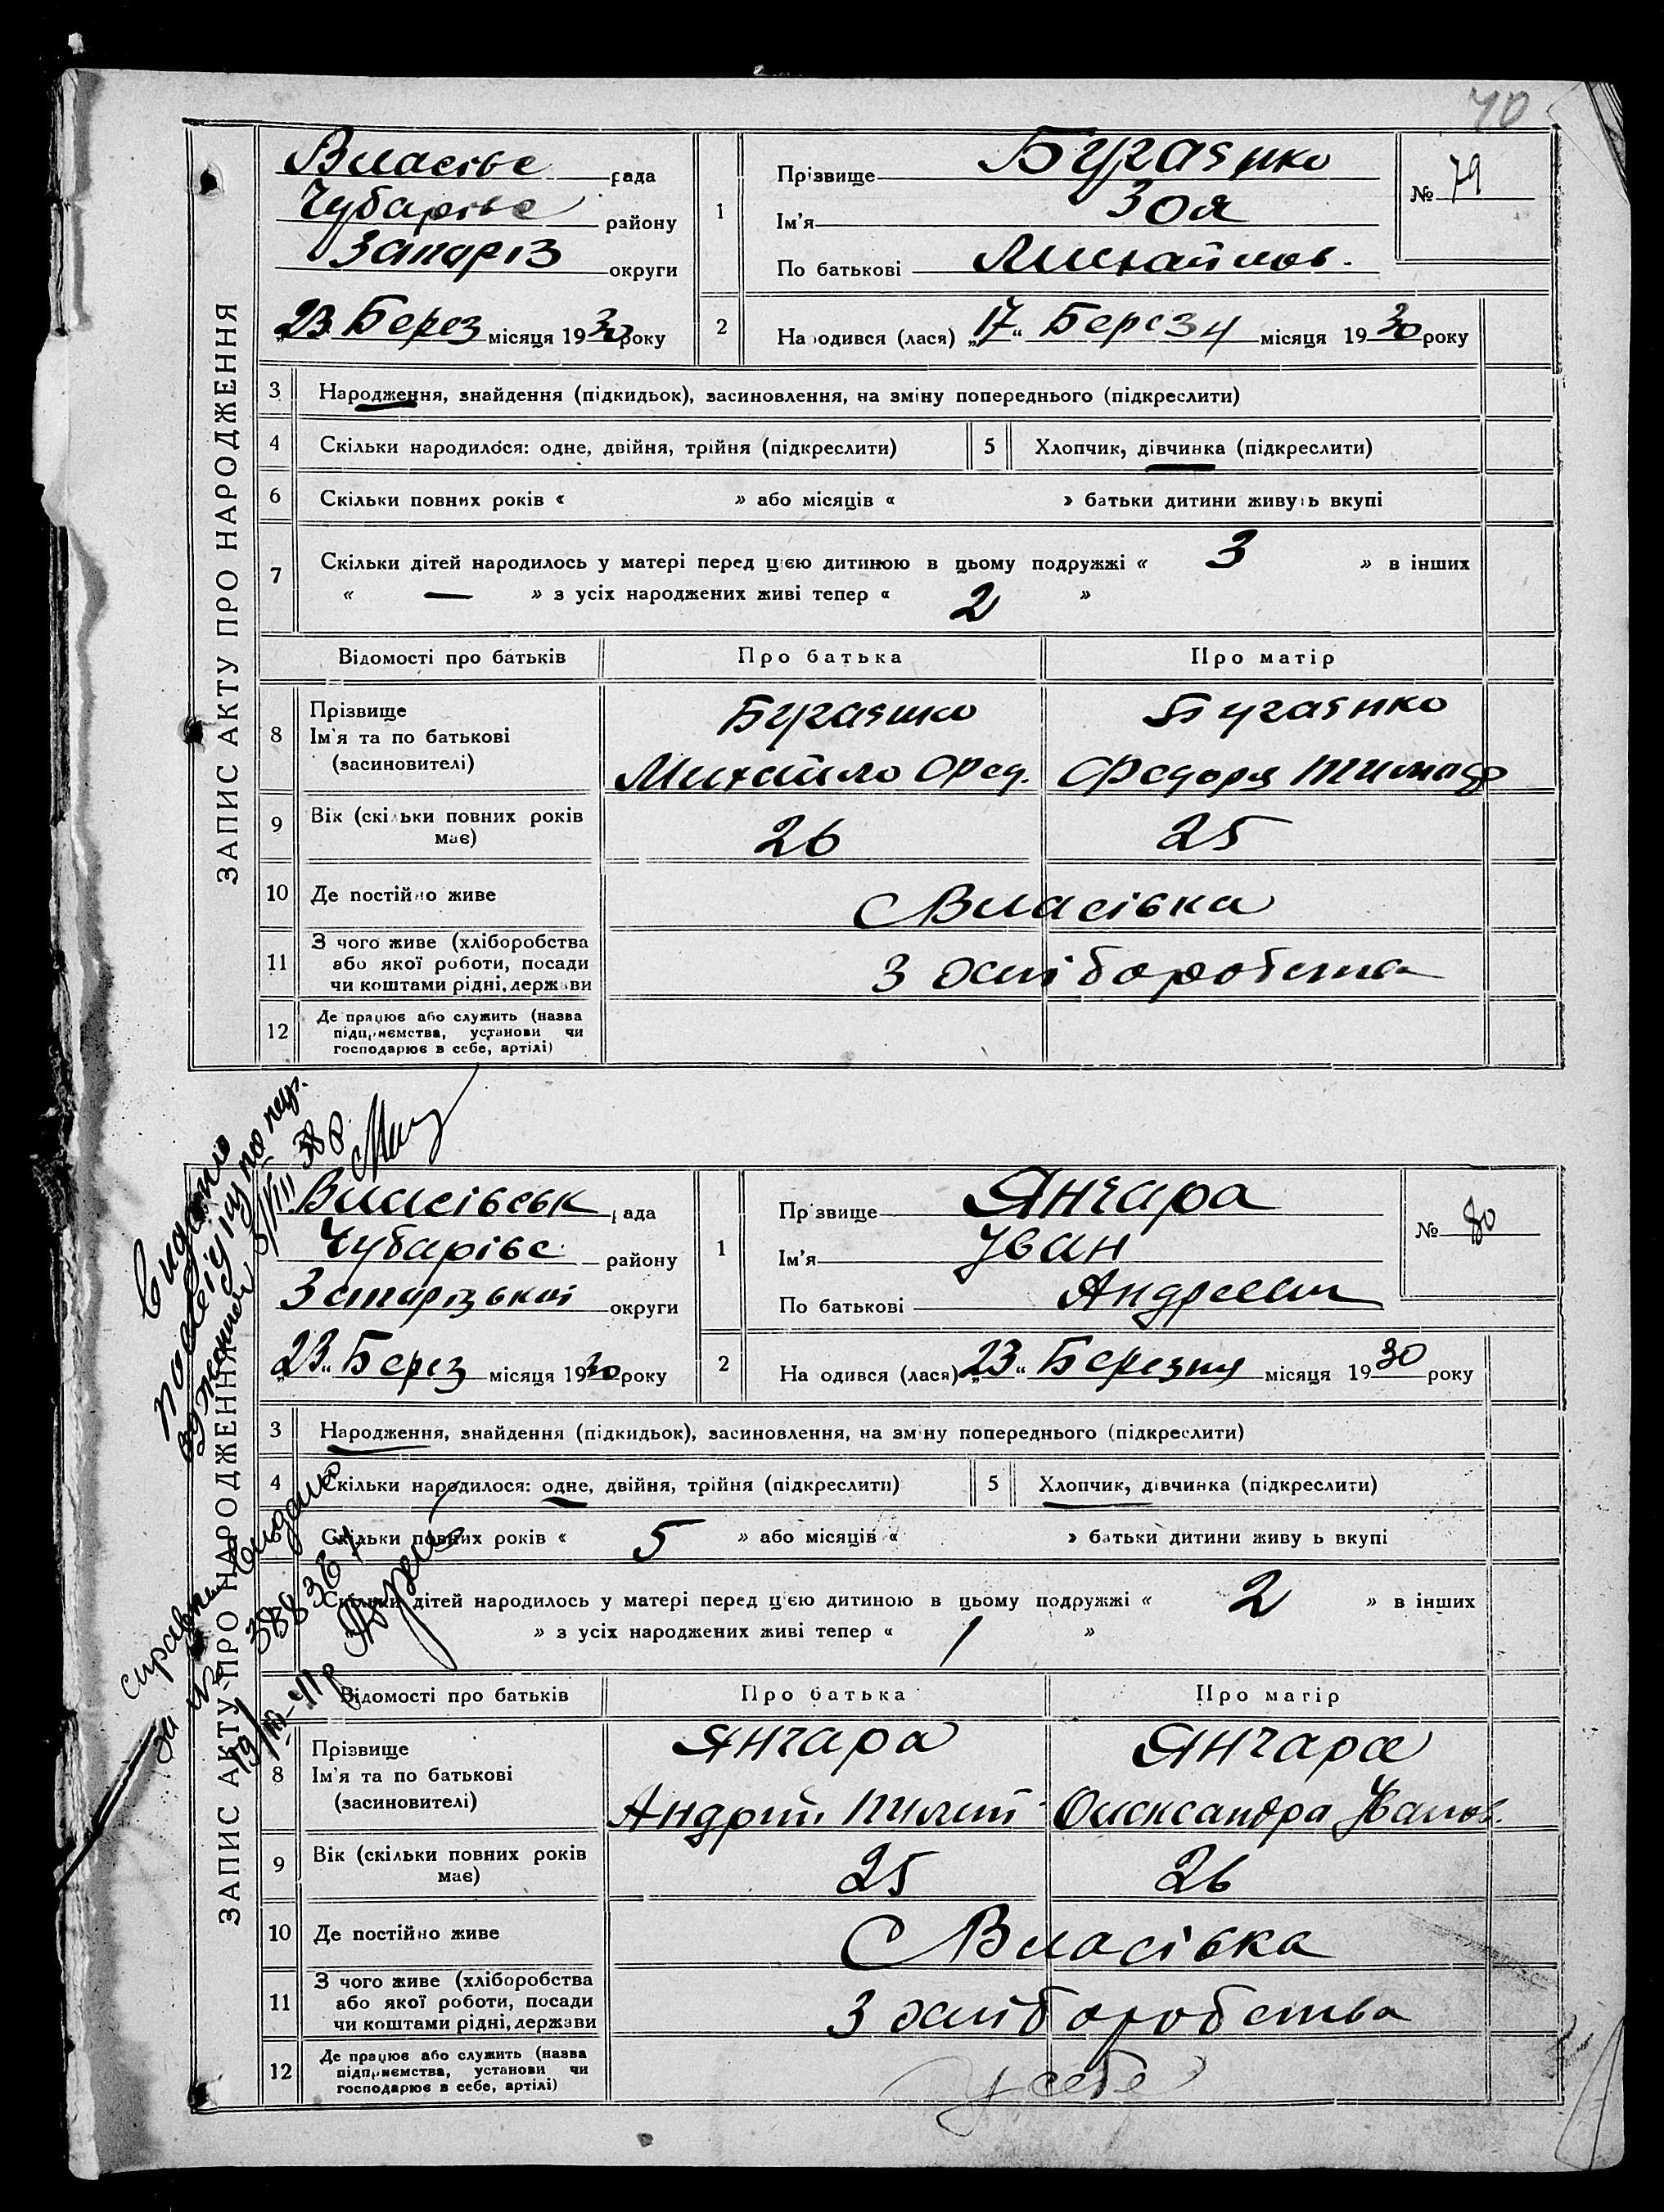 40
ЗАПИС АКТУ ПРО НАРОДЖЕННЯ
Власівс рада
Чубарівс району
Запоріз округи
„23 Берез місяця 1930 року
1
Прізвище Бугаянко
Ім'я Зоя
По батькові Михайлов.
№ 79
2
Народився (лася) „17“ Березн місяця 1930 року
3 Народження, знайдення (підкидьок), засиновлення, на зміну попереднього (підкреслити)
4 Скільки народилося: одне, двійня, трійня (підкреслити) 5 Хлопчик, дівчинка (підкреслити)
6 Скільки повних років « » або місяців « » батьки дитини живуть вкупі
7 Скільки дітей народилось у матері перед цією дитиною в цьому подружжі « 3 » в інших
« — » з усіх народжених живі тепер « 2 »
Відомості про батьків Про батька Про матір
8 Прізвище Бугаянко Бугаянко
Ім'я та по батькові
(засиновителі) Михайло Фед. Федора Тимоф
9 Вік (скільки повних років
має) 26 25
10 Де постійно живе С Власівка
11 З чого живе (хліборобства
або якої роботи, посади З хліборобства
чи коштами рідні, держави
12 Де працює або служить (назва
підприємства, установи чи
господарює в себе, артілі)
Видано
по
справку видано
за №
ЗАПИС АКТУ ПРО НАРОДЖЕННЯ
Власівськ рада
Чубарівс. району
Запорізької округи
„23“ Берез місяця 1930 року
1
Прізвище Янчара
Ім'я Іван
По батькові Андреевич
№ 80
2
Народився (лася) „23“ Березня місяця 1930 року
3 Народження, знайдення (підкидьок), засиновлення, на зміну попереднього (підкреслити)
4 Скільки народилося: одне, двійня, трійня (підкреслити) 5 Хлопчик, дівчинка (підкреслити)
Скільки повних років « 5 » або місяців « » батьки дитини живуть вкупі
Скільки дітей народилось у матері перед цією дитиною в цьому подружжі « 2 » в інших
» з усіх народжених живі тепер « 1 »
Відомості про батьків Про батька Про матір
8 Прізвище Янчара Янчара
Ім'я та по батькові
(засиновителі) Андрій Олександра Іванов.
9 Вік (скільки повних років
має) 25 26
10 Де постійно живе С Власівка
11 З чого живе (хліборобства
або якої роботи, посади З хліборобства
чи коштами рідні, держави
12 Де працює або служить (назва
підприємства, установи чи у себе
господарює в себе, артілі)